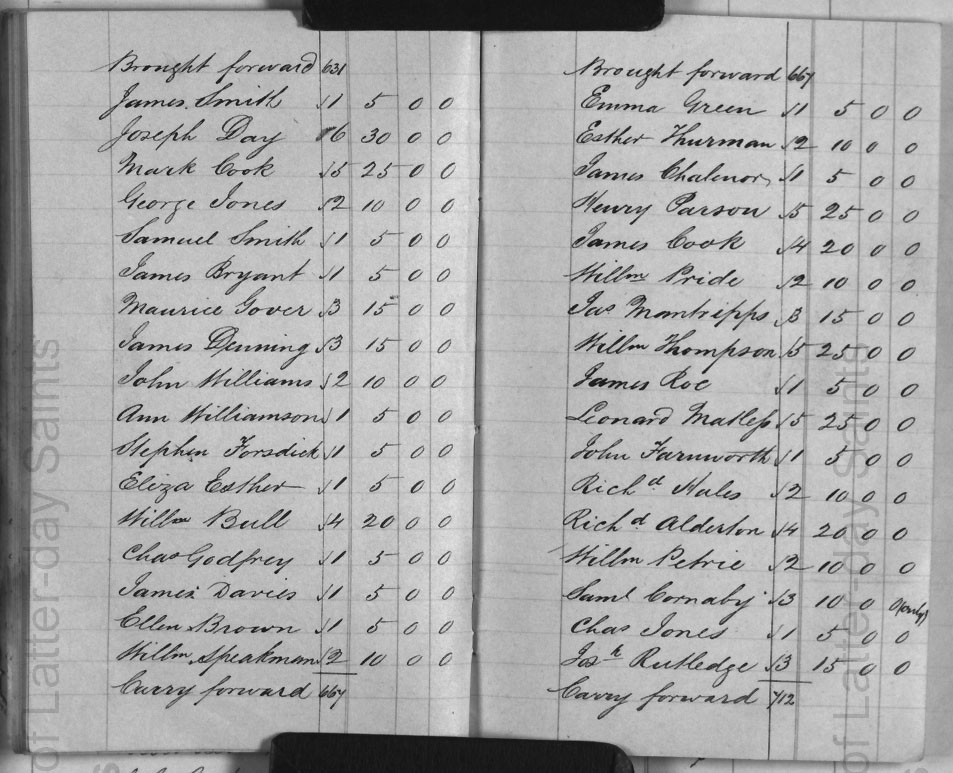 Brought forward 631
James Smith √1 5 0 0
Joseph Day √6 30 0 0
Mark Cook √5 25 0 0
George Jones √2 10 0 0
Samuel Smith √1 5 0 0
James Bryant √1 5 0 0
Maurice Gover √3 15 0 0
James Denning √3 15 0 0
John Williams √2 10 0 0
Ann Williamson √1 5 0 0
Stephen Forsdick √1 5 0 0
Eliza Esther √1 5 0 0
Willm Bull √4 20 0 0
Chas Godfrey √1 5 0 0
James Davies √1 5 0 0
Ellen Brown √1 5 0 0
Willm Speakman √2 10 0 0
Carry forward 667
Brought forward 667
Emma Green √1 5 0 0
Esther Thurman √2 10 0 0
James Chalenor √1 5 0 0
Henry Parson √5 25 0 0
James Cook √4 20 0 0
Willm Pride √2 10 0 0
Jas Mantripps √3 15 0 0
Willm Thompson √5 25 0 0
James Roe √1 5 0 0
Leonard Matless √5 25 0 0
John Farnworth √1 5 0 0
Richd Hales √2 10 0 0
Richd Alderton √4 20 0 0
Willm Petrie √2 10 0 0
Saml Cornaby √3 10 0 0 (only)
Chas Jones √1 5 0 0
Josh Rutledge √3 15 0 0
Carry forward 712
of Latter-day Saints
of Latter-day Saints